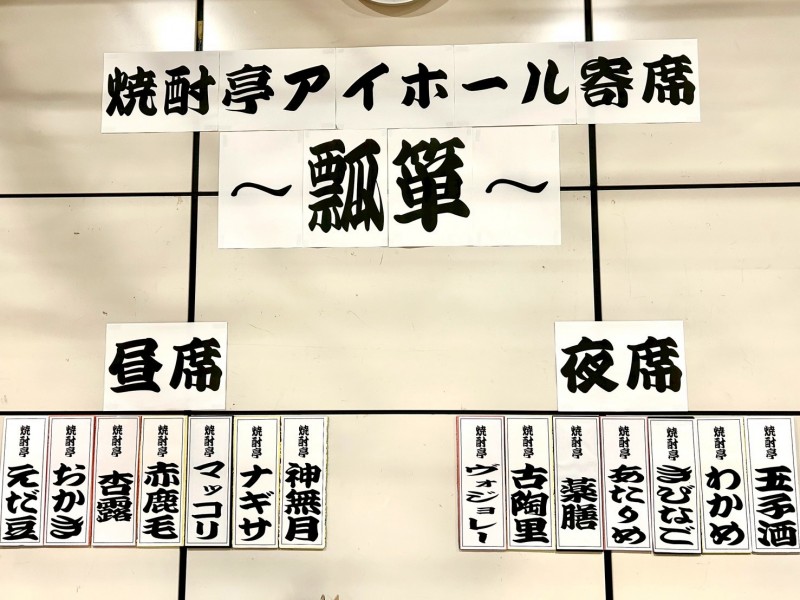 焼酎亭アイホール寄席
～瓢箪～
昼席
焼酎亭 神無月
焼酎亭 ナギサ
焼酎亭 マッコリ
焼酎亭 赤鹿毛
焼酎亭 杏露
焼酎亭 おかき
焼酎亭 えだ豆
夜席
焼酎亭 玉子酒
焼酎亭 わかめ
焼酎亭 きびなご
焼酎亭 あたりめ
焼酎亭 薬膳
焼酎亭 古陶里
焼酎亭 ヴォジョレー